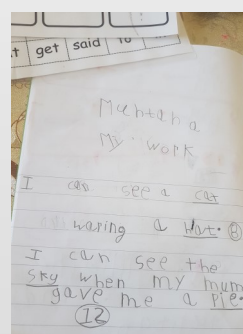 get said to
Muntana
My work
I can see a cat
waring a Hat. 8
I can see the
sky when my mum
gave me a pie.
12